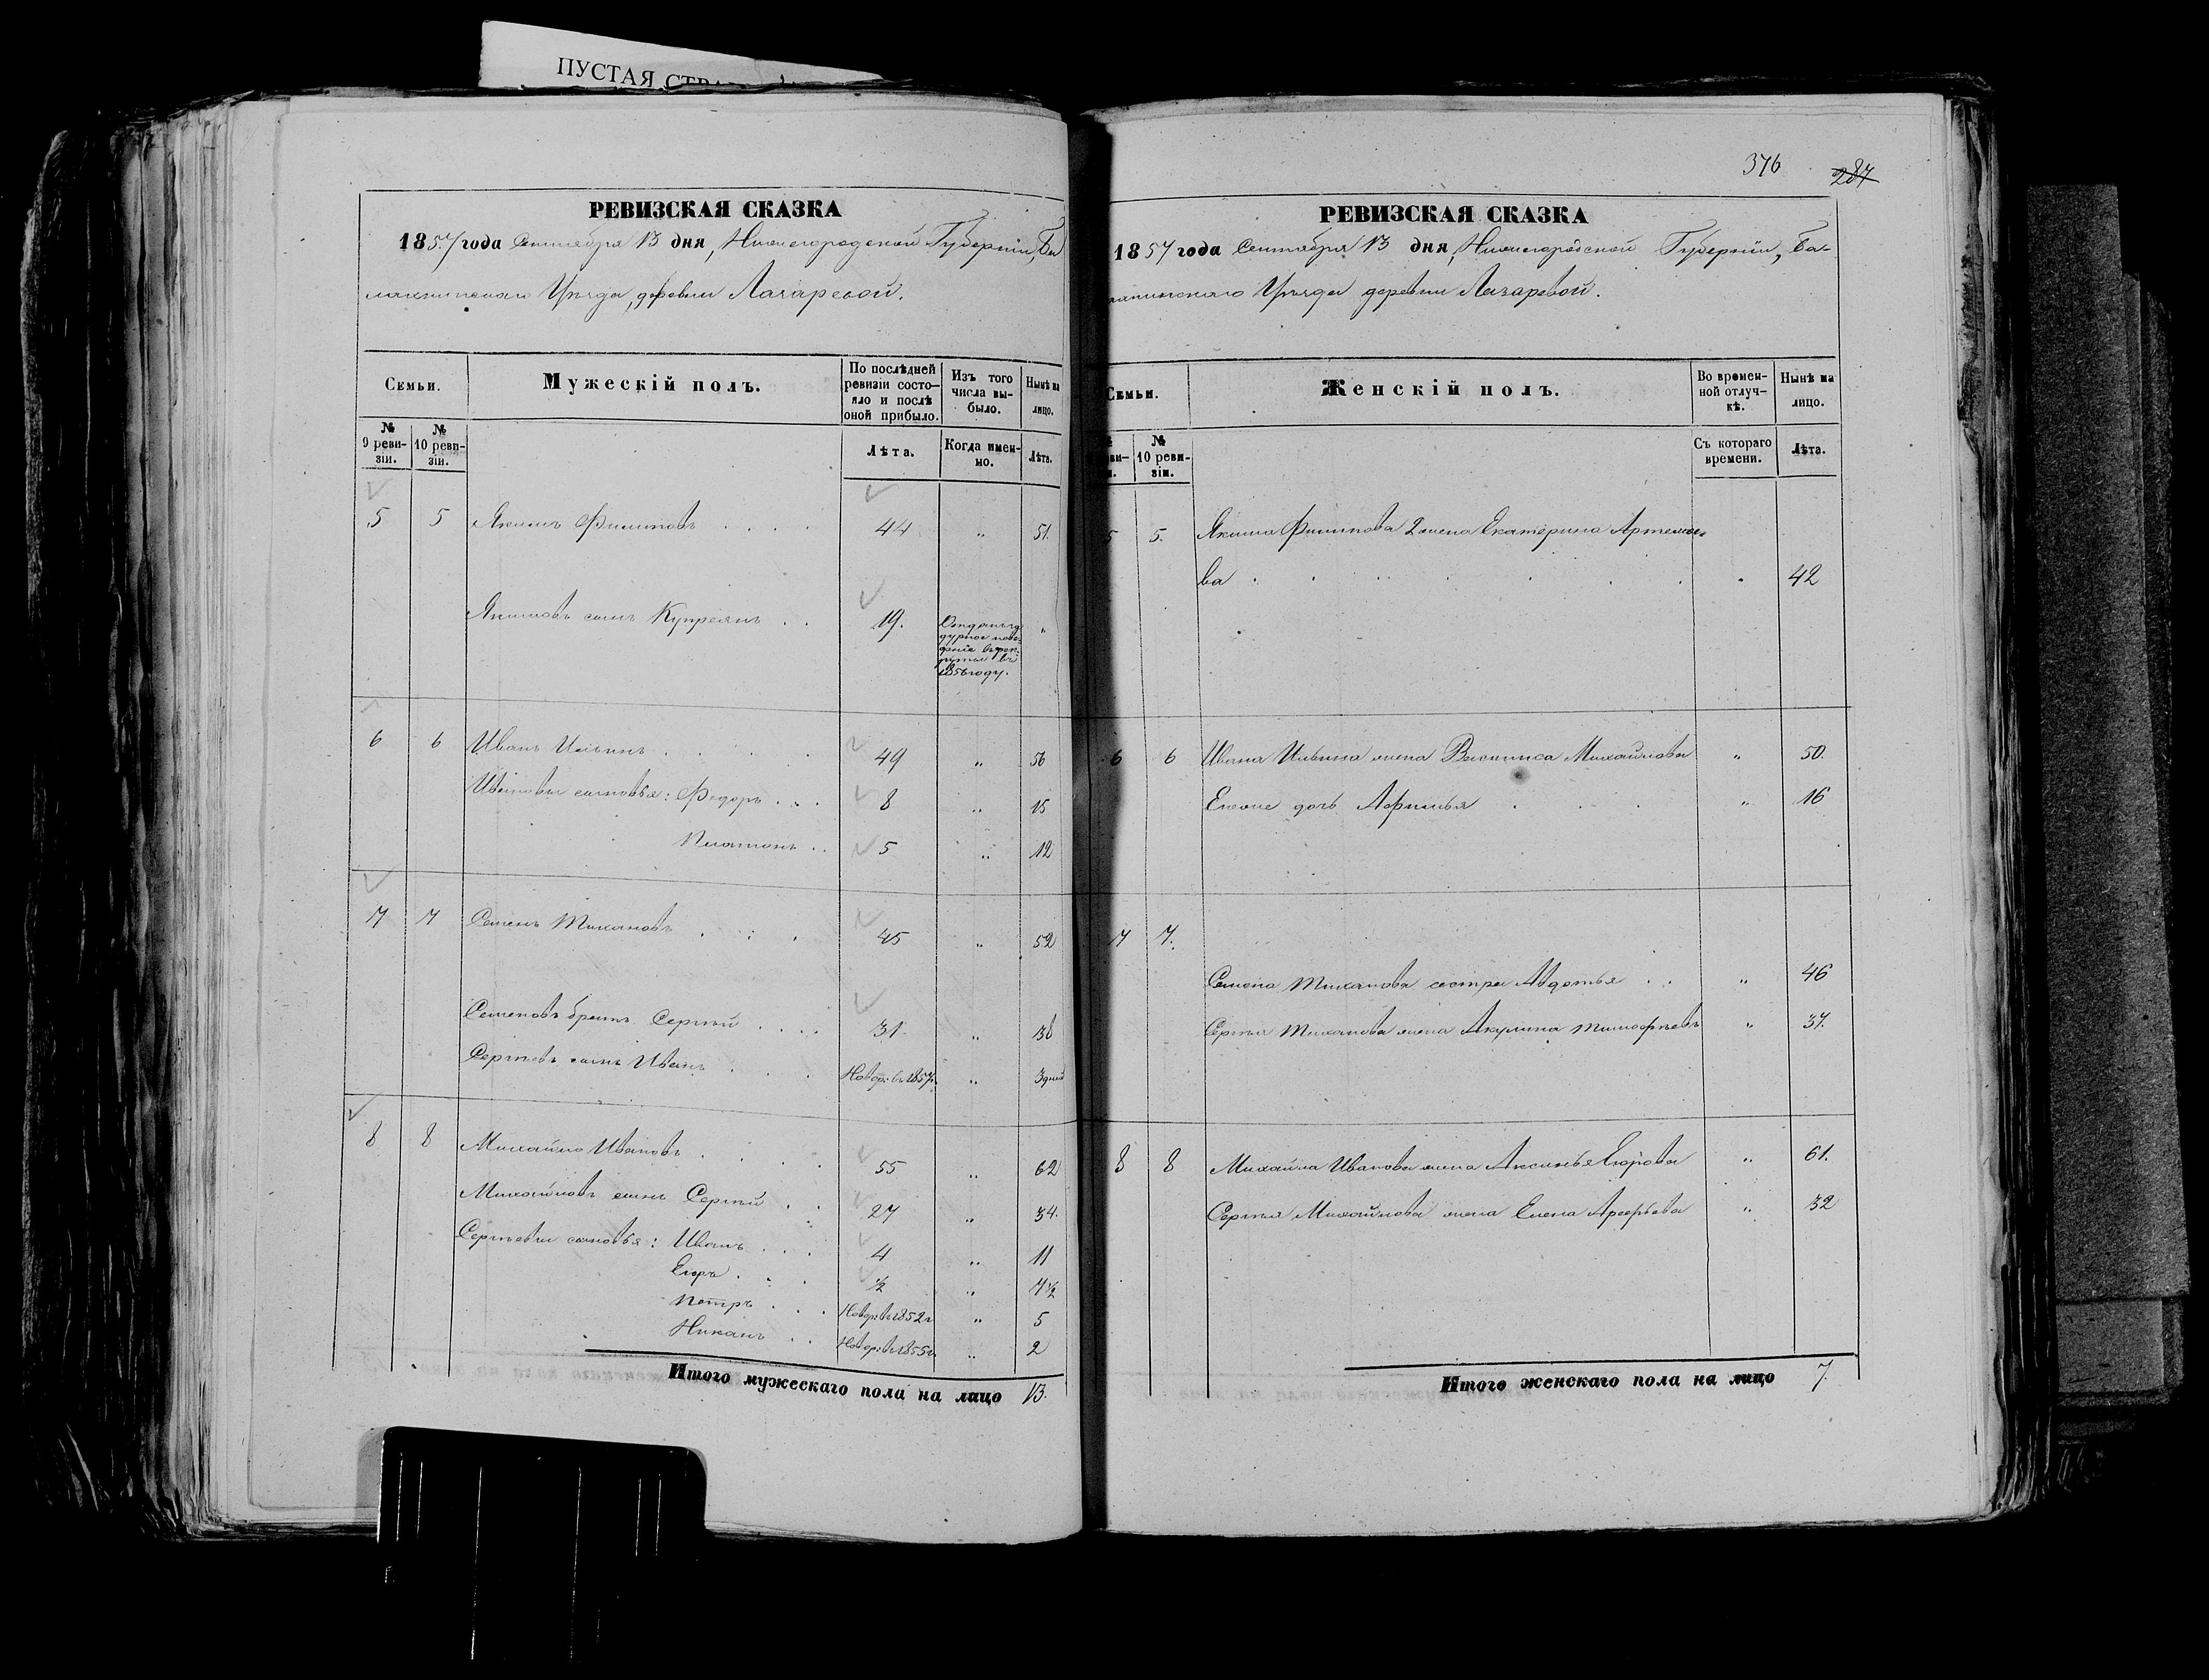 ПУСТАЯ
РЕВИЗСКАЯ СКАЗКА
1857 года Сентября 13 дня, Нижегородской Губернiи, Ба
лахнинскаго Уѣзда, деревни Лазаревой.
Семьи.
Мужескiй полъ.
По послѣдней ревизiи состо–яло и послѣ оной прибыло.
Изъ того числа вы-было.
Нынѣ на лицо.
№ 9 реви-зiи.
№ 10 реви-зiи.
Лѣта.
Когда имен-но.
Лѣта.
5 5 Якимъ Филиповъ . . . . 44 „ 51.
Якимовъ сынъ Купреянъ . . 19. Отданъ за дурное пове-денiе въ рек-руты въ 1856 году. „
6 6 Иванъ Ильинъ . . . . 49 „ 56
Ивановы сыновья: Федоръ . . . 8 „ 15
Платонъ . . 5 „ 12
7 7 Семенъ Тихановъ . . . 45 „ 52
Семеновъ братъ Сергѣй . . . . 31 „ 38
Сергѣевъ сынъ Иванъ . . . Новор: въ 1857г. „ 3 дней
8 8 Михайло Ивановъ . . . . 55 „ 62
Михайловъ сынъ Сергѣй . . 27 „ 34.
Сергѣевы сыновья: Иванъ . . . 4 „ 11
Егоръ . . . ½ „ 7½
Петръ . . . Новор: въ 1852г „ 5
Никанъ . . Новор: въ 1855г. „ 2
Итого мужескаго пола на лицо 13.
376 287
РЕВИЗСКАЯ СКАЗКА
1857 года Сентября 13 дня, Нижегородской Губернiи, Ба-
лахнинскаго Уѣзда деревни Лазаревой.
Семьи.
Женскiй полъ.
Во времен-ной отлуч-кѣ.
Нынѣ на лицо.
№ 10 реви-зiи.
Съ котораго времени.
Лѣта.
5 5. Якима Филипова 2 жена Екатерина Артемье-
ва . . . . . . . „ 42
6 6 Ивана Ильина жена Василиса Михайлова „ 50.
Егоже дочь Афимья . . . „ 16
7 7.
Семена Тиханова сестра Авдотья . . „ 46
Сергѣя Тиханова жена Акулина Тимофѣевъ „ 37.
8 8 Михайла Иванова жена Аксинья Егорова „ 61.
Сергѣя Михайлова жена Елена Арефьева „ 32
Итого женскаго пола на лицо 7.